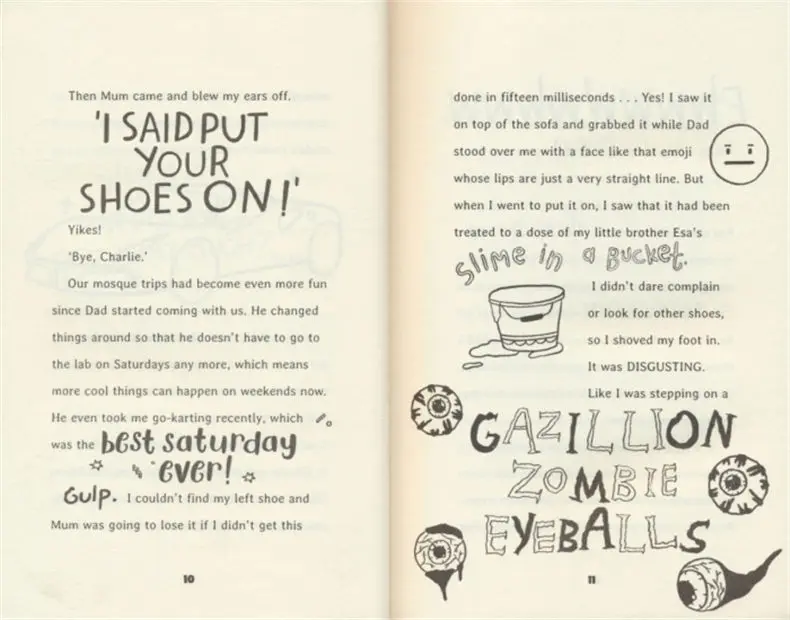 Then Mum came and blew my ears off.
'I SAID PUT
YOUR
SHOES ON!'
Yikes!
'Bye, Charlie.'
Our mosque trips had become even more fun
since Dad started coming with us. He changed
things around so that he doesn't have to go to
the lab on Saturdays any more, which means
more cool things can happen on weekends now.
He even took me go-karting recently, which
was the best saturday
ever!
Gulp. I couldn't find my left shoe and
Mum was going to lose it if I didn't get this
10
done in fifteen milliseconds . . . Yes! I saw it
on top of the sofa and grabbed it while Dad
stood over me with a face like that emoji
whose lips are just a very straight line. But
when I went to put it on, I saw that it had been
treated to a dose of my little brother Esa's
slime in a bucket.
I didn't dare complain
or look for other shoes,
so I shoved my foot in.
It was DISGUSTING.
Like I was stepping on a
GAZILLION
ZOMBIE
EYEBALLS
11